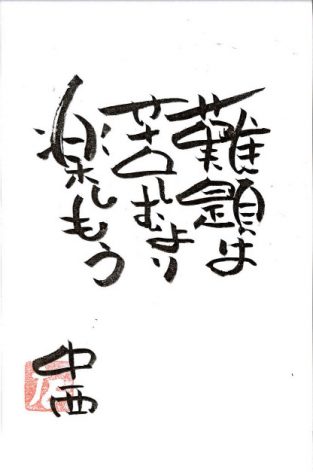 難題は
苦しむより
楽しもう
中西